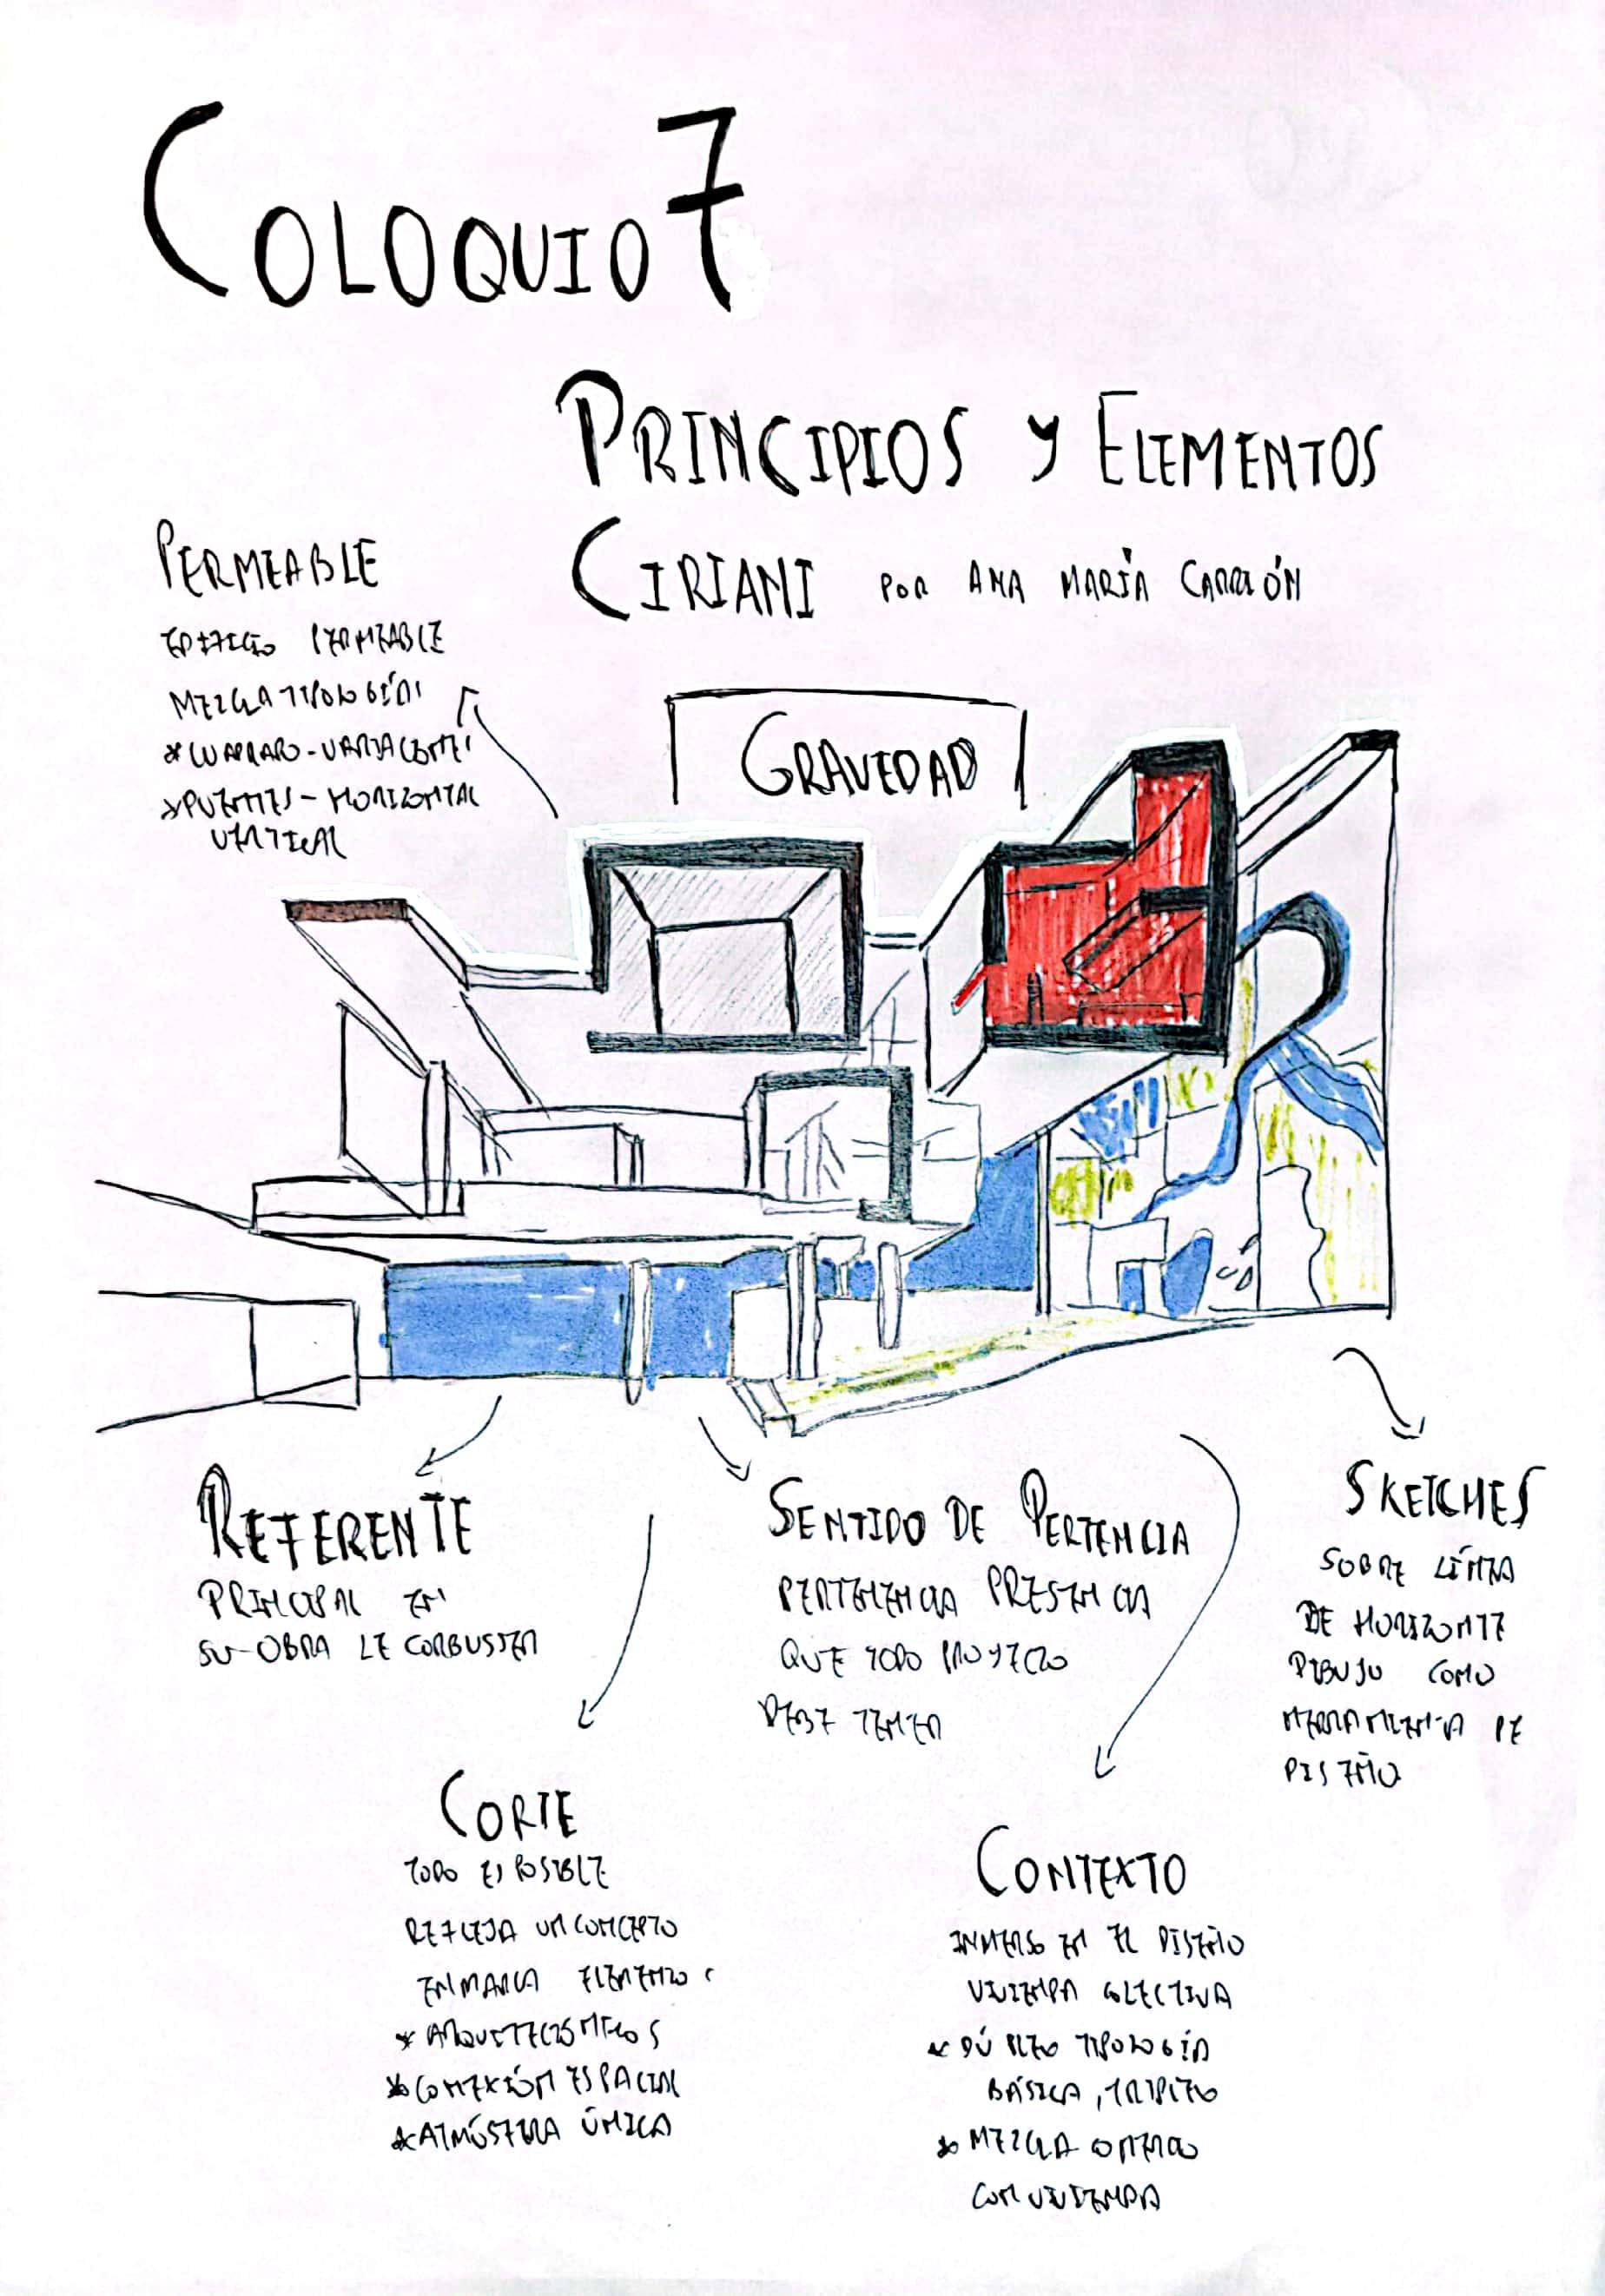 COLOQUIO 7
PRINCIPIOS Y ELEMENTOS
CIRIANI POR ANA MARÍA CARRIÓN
PERMEABLE
EDIFICIO PERMEABLE
MEZCLA TIPOLOGÍAS
* CUADRADO - VARIACIONES
* PUENTES - HORIZONTAL
VERTICAL
GRAVEDAD
REFERENTE
PRINCIPAL EN
SU OBRA LE CORBUSIER
SENTIDO DE PERTENCIA
PERTENENCIA PRESENCIA
QUE TODO PROYECTO
DEBE TENER
SKETCHES
SOBRE LÍNEA
DE HORIZONTE
DIBUJO COMO
HERRAMIENTA DE
DISEÑO
CORTE
TODO ES POSIBLE
REFLEJA UN CONCEPTO
ENMARCA ELEMENTOS
* ARQUITECTÓNICOS
* CONEXIÓN ESPACIAL
* ATMÓSFERA ÚNICA
CONTEXTO
INMERSO EN EL DISEÑO
VIVIENDA COLECTIVA
* DÚPLEX TIPOLOGÍA
BÁSICA, TRIPLEX
* MEZCLA COMERCIO
CON VIVIENDA